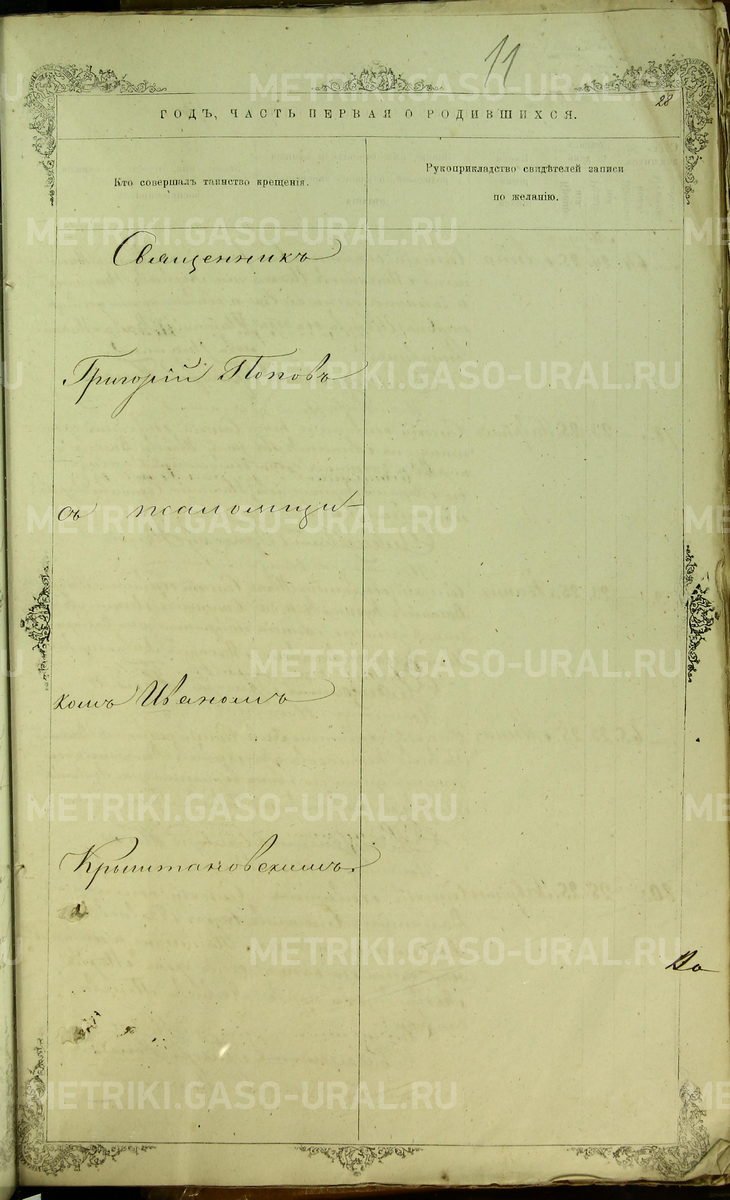 11
28
ГОДЪ, ЧАСТЬ ПЕРВАЯ О РОДИВШИХСЯ.
Кто совершалъ таинство крещенія.
Рукоприкладство свидѣтелей записи
по желанію.
Священникъ
Григорій Поповъ
съ псаломщи-
комъ Иваномъ
Крыштановскимъ.
METRIKI.GASO-URAL.RU